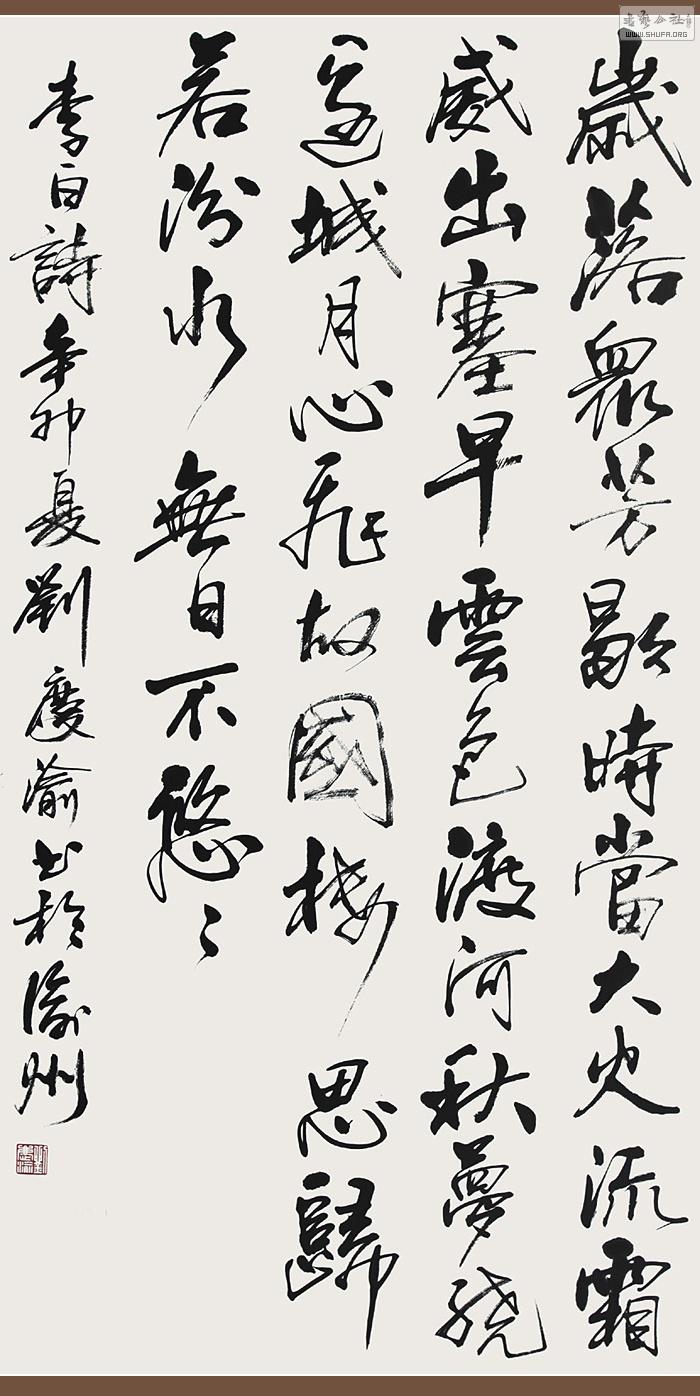 歲落衆芳歇時當大火流霜
威出塞早雲色渡河秋夢繞
邊城月心飛故國樓思歸
若汾水無日不悠〻
李白詩辛卯夏劉慶渝书於渝州
书艺公社
WWW.SHUFA.ORG